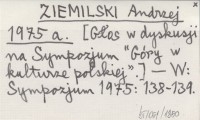 ZIEMILSKI Andrzej
1975 a. [Głos w dyskusji
na Sympozjum "Góry w
kulturze polskiej".] — W:
Sympozjum 1975: 138-139.